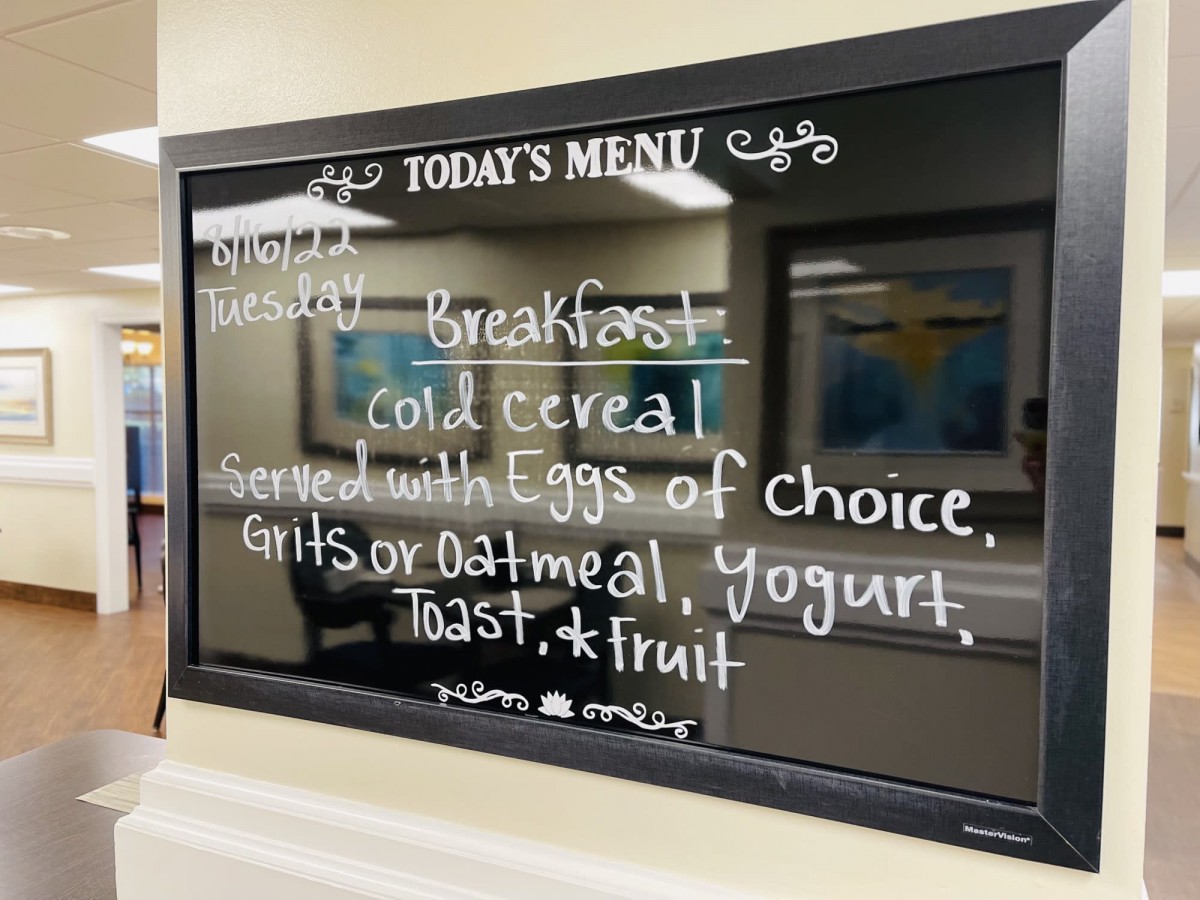 TODAY'S MENU
8/16/22
Tuesday
Breakfast:
Cold cereal
Served with Eggs of choice,
Grits or Oatmeal, Yogurt,
Toast, & Fruit
MasterVision®